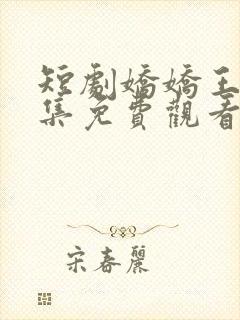 短劇嬌嬌王
集免費觀看
宋春麗